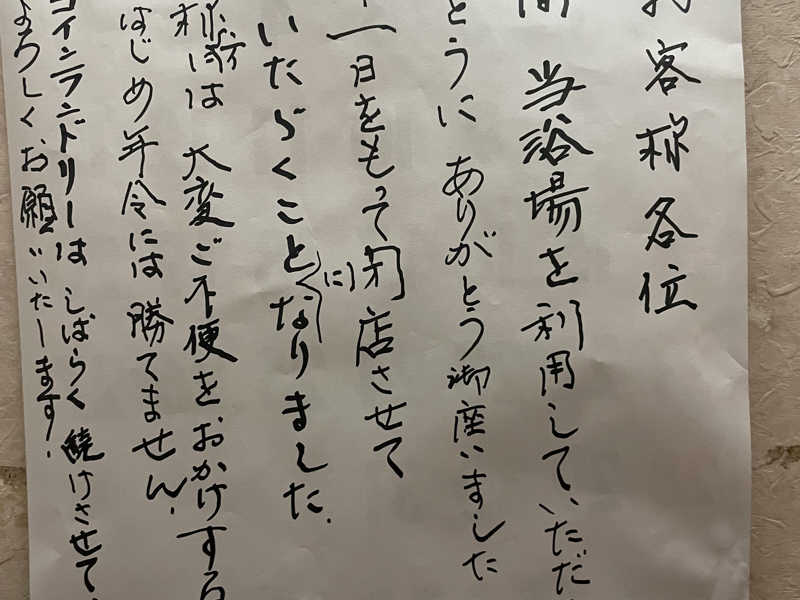 お客様各位
間 当浴場を利用していただ
とうに ありがとう御座いました
十一日をもって閉店させて
いただくことになりました.
様には 大変ご不便をおかけする
はじめ年令には勝てません.
コインランドリーは しばらく 続けさせて
よろしくお願いいたします.